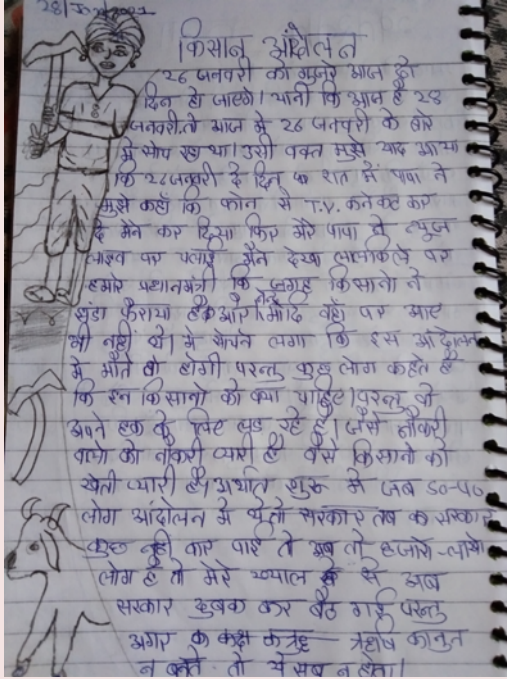 28/Jan/2021
किसान आंदोलन
26 जनवरी को गुजरे आज दो
दिन हो जाएगे। यानी कि आज है 28
जनवरी। तो आज मे 26 जनवरी के बारे
मे सोच रहा था। उसी वक्त मुझे याद आया
कि 26 जनवरी के दिन रात में पापा ने
मुझे कहाँ कि फोन से T.V. कनेकट कर
दे मैने कर दिया फिर मेरे पापा ने न्यूज
लाइव पर चलाई मैने देखा लालकिले पर
हमारे प्रधानमंत्री कि जगह किसानो ने
झंडा फैराया है और मोदि वहाँ पर आए
भी नहीं थे। मे सोचने लगा कि इस आंदोलन
मे मौते तो होगी परन्तु कुछ लोग कहते है
कि इन किसानो को क्या चाहिए। परन्तु वो
अपने हक के लिए लड रहे है। जैसे नौकरी
वालो को नौकरी प्यारी है वैसे किसानो को
खेती प्यारी है। अर्थात शुरू मे जब 30-40
लोग आंदोलन मे थे तो सरकार तब सरकार
कुछ नही कर पाई तो अब तो हजारो-लाखो
लोग है तो मेरे ख्याल से अब
सरकार दुबक कर बैठ गई परन्तु
अगर कानुन
न बनते तो ये सब न होता।